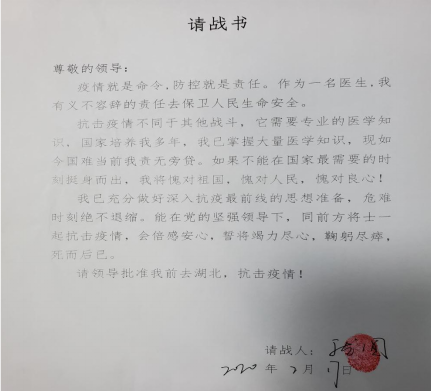 请战书
尊敬的领导：
疫情就是命令，防控就是责任。作为一名医生，我
有义不容辞的责任去保卫人民生命安全。
抗击疫情不同于其他战斗，它需要专业的医学知
识，国家培养我多年，我已掌握大量医学知识，现如
今国难当前我责无旁贷。如果不能在国家最需要的时
刻挺身而出，我将愧对祖国，愧对人民，愧对良心！
我已充分做好深入抗疫最前线的思想准备，危难
时刻绝不退缩。能在党的坚强领导下，同前方将士一
起抗击疫情，会倍感安心，誓将竭力尽心，鞠躬尽瘁，
死而后已。
请领导批准我前去湖北，抗击疫情！
请战人：
2020 年 2 月 日